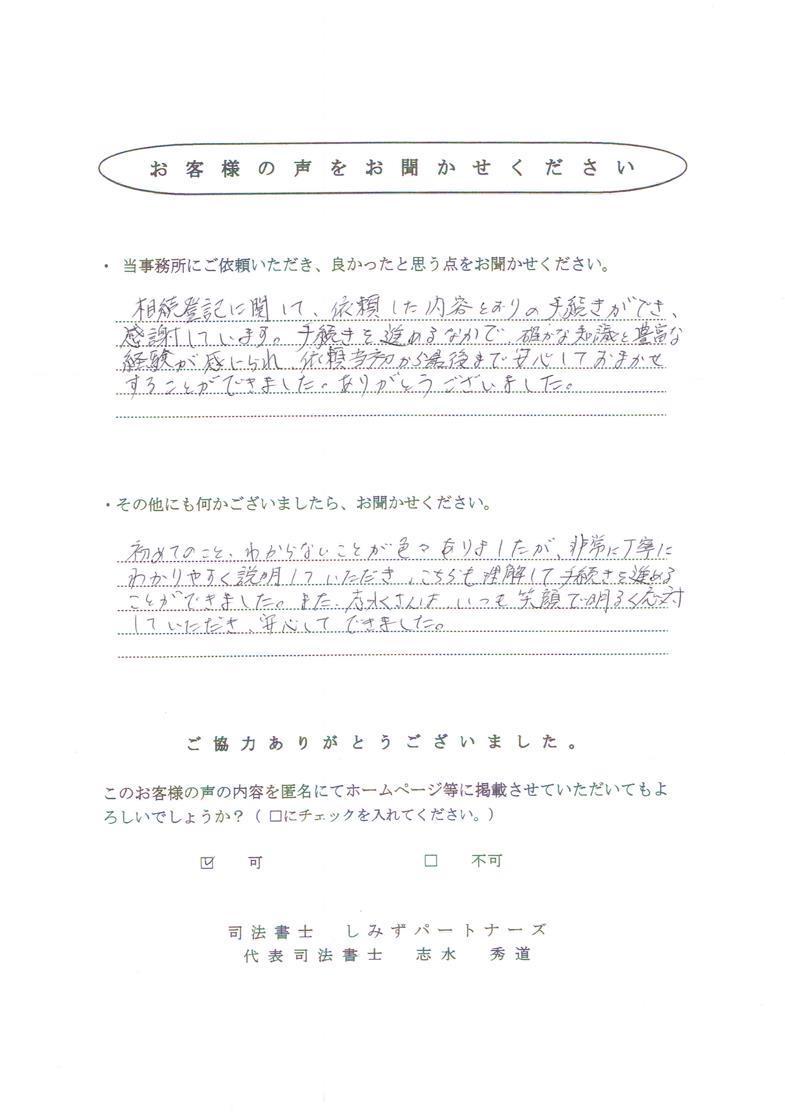 お客様の声をお聞かせください
・ 当事務所にご依頼いただき、良かったと思う点をお聞かせください。
相続登記に関して、依頼した内容とおりの手続きができ、
感謝しています。手続きを進めるなかで、確かな知識と豊富な
経験が感じられ、依頼当初から最後まで安心しておまかせ
することができました。ありがとうございました。
・その他にも何かございましたら、お聞かせください。
初めてのこと、わからないことが色々ありましたが、非常に丁寧に
わかりやすく説明していただき、こちらも理解して手続きを進める
ことができました。また、志水さんは、いつも笑顔で明るく応対
していただき、安心してできました。
ご協力ありがとうございました。
このお客様の声の内容を匿名にてホームページ等に掲載させていただいてもよ
ろしいでしょうか?(□にチェックを入れてください。)
☑ 可 □ 不可
司法書士 しみずパートナーズ
代表司法書士 志水 秀道